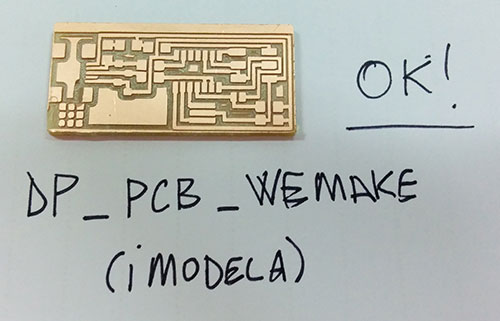 OK!
DP_PCB_WEMAKE
(iMODELA)